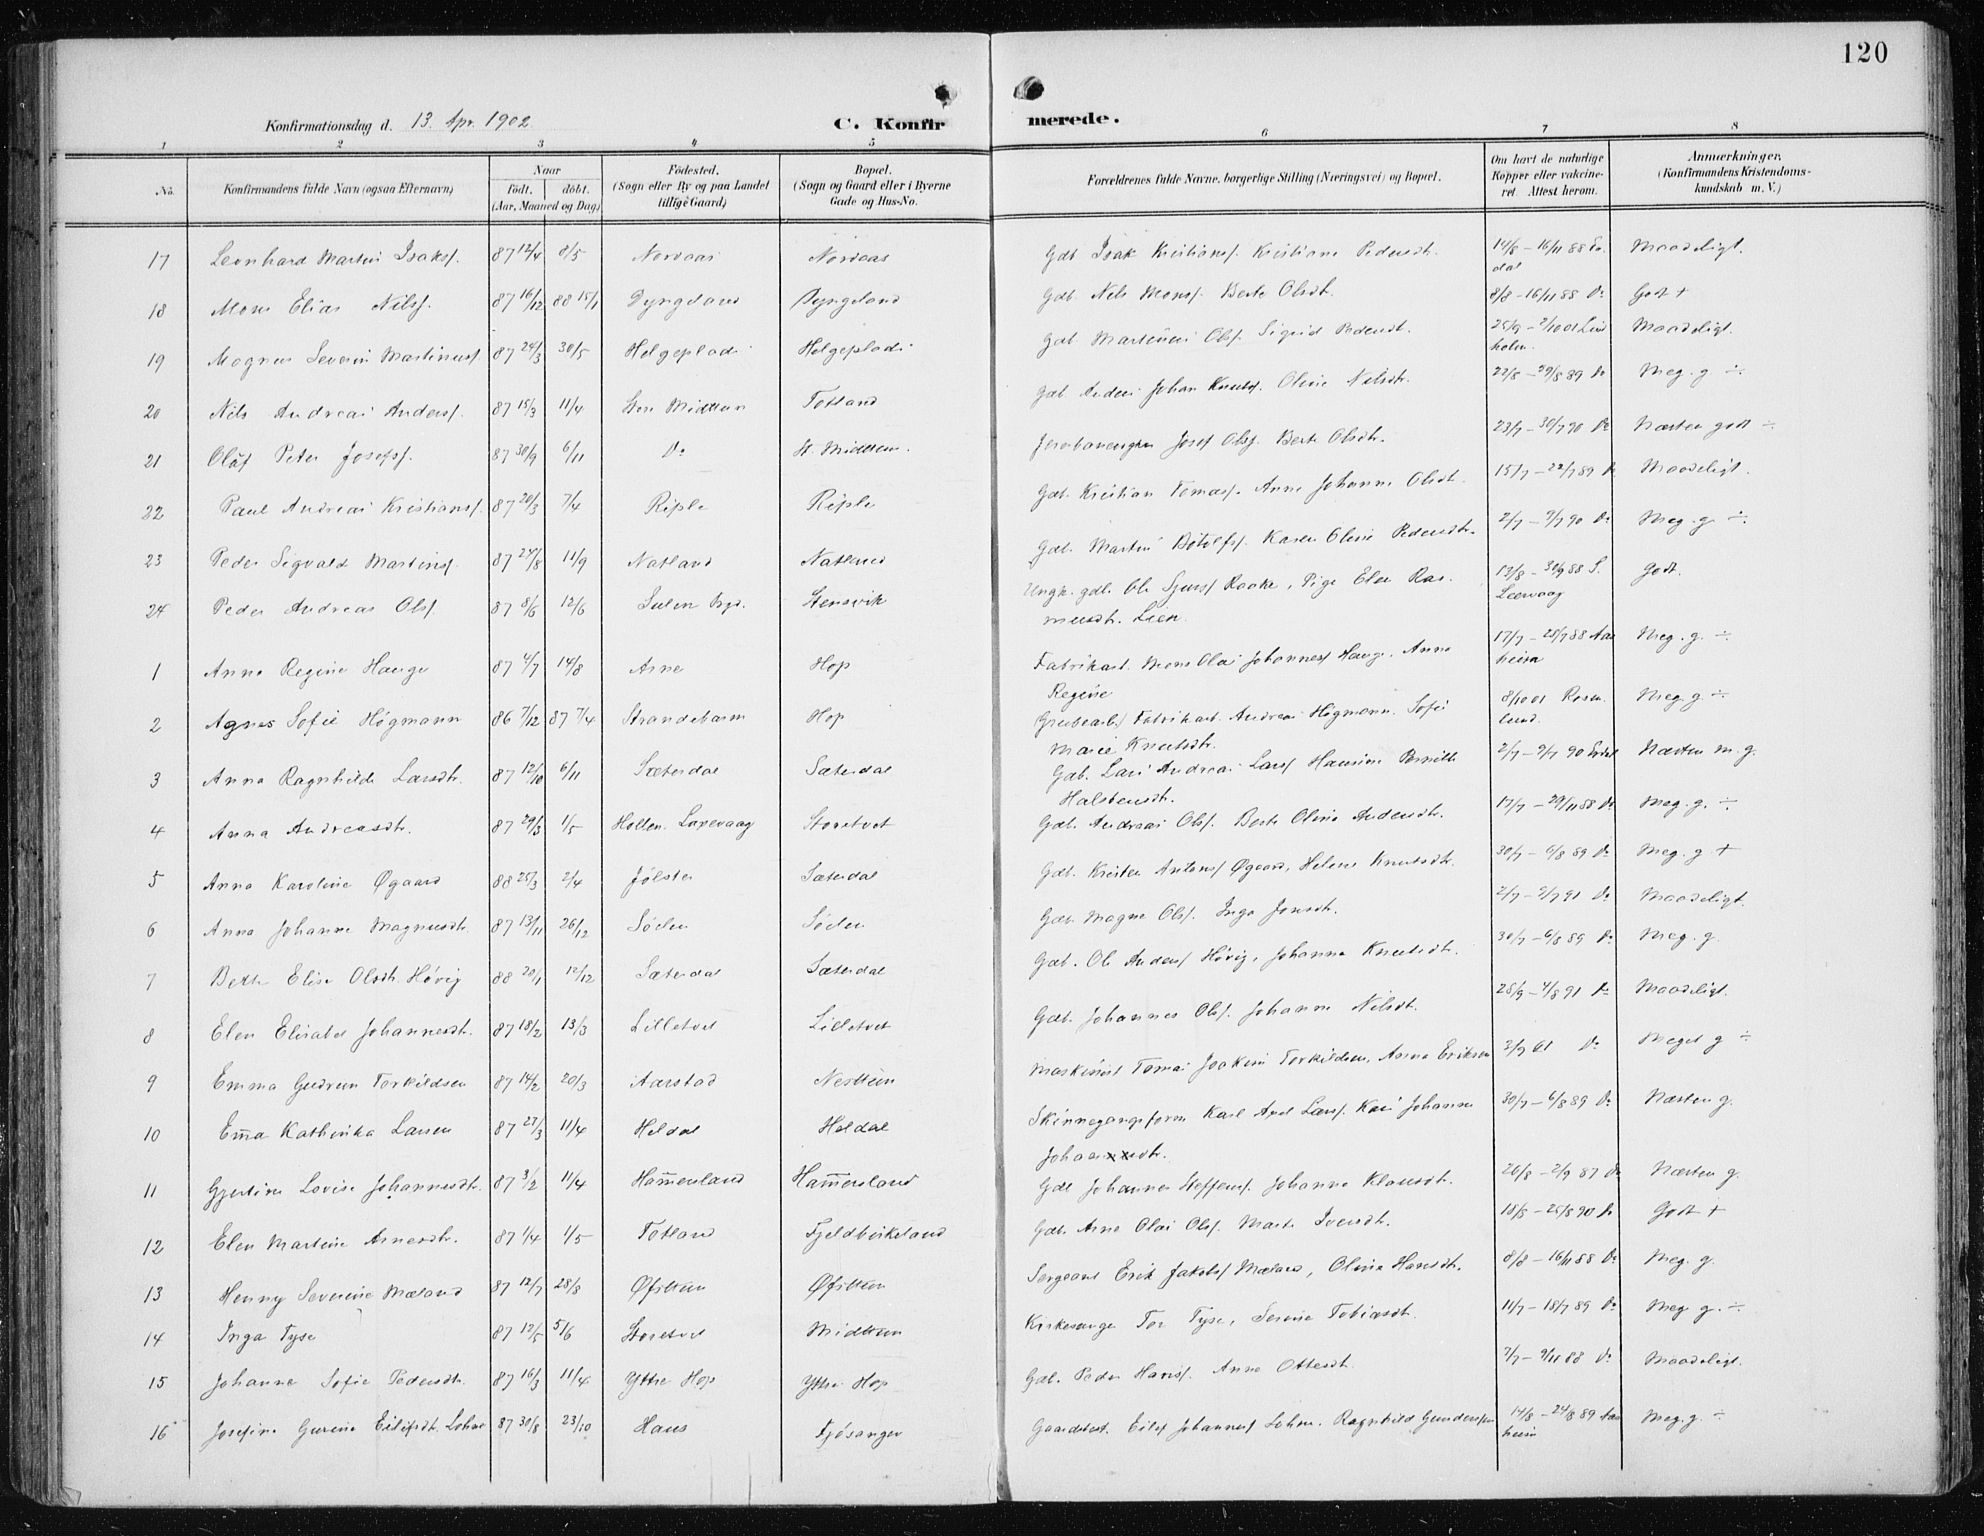 120
Konfirmationsdag d. 13. Apr. 1902
C. Konfirmerede.
1 2 3 4 5 6 7 8
No. Konfirmandens fulde Navn (ogsaa Efternavn) Naar født. døbt. (Aar, Maaned og Dag) Fødested. (Sogn eller By og paa Landet tillige Gaard) Bopæl. (Sogn og Gaard eller i Byerne Gade og Hus-No. Forældrenes fulde Navne, borgerlige Stilling (Næringsvei) og Bopæl. Om havt de naturlige Kopper eller vakcineret. Attest herom. Anmærkninger. (Konfirmandens Kristendomskundskab m. V.)
17 Leonhard Martin Isaks. 87 12/4 8/5 Nordaas Nordaas Gdb. Isak Kristians. Kristiane Pedersdt. 14/8 – 16/11 88 Maadeligt.
18 Mons Elias Nils. 87 16/12 88 15/1 Dyngeland Dyngeland Gdb. Nils Mons. Berte Olsdt. 8/8 – 16/11 88 Do Godt +
19 Magnus Severin Martinus. 87 24/3 30/5 Helgeplads Helgeplads Gdb. Martinus Ols. Sigrid Pedersdt. 25/9 – 2/10 01 Lindholm. Maadeligt.
20 Nils Andreas Anders. 87 15/3 11/4 Store Midttun Totland Gdb. Anders Johan Knuts. Oline Nilsdt. 22/8 – 29/8 89 Do Meg. g ÷
21 Olaf Peter Josefs. 87 30/9 6/11 Do St. Midttun. Josef Ols. Berte Olsdt. 23/7 – 30/7 90 Do Næsten godt ÷
22 Paul Andreas Kristians. 87 20/3 7/4 Riple Riple Gdb. Kristian Tomas. Anne Johanne Olsdt. 15/7 – 22/7 89 Do Maadeligt.
23 Peder Sigvald Martins. 87 27/8 11/9 Natland Natland Gdb. Martin Botolfs. Karen Oline Pedersdt. 2/7 – 9/7 90 Do Meg. g. ÷
24 Peder Andreas Ols. 87 8/6 12/6 Sulen Stensvik Ungk. gdb. Ole Sjurs. Raake, Pige Elen Rasmusdt. Lien. Leervaag Godt.
1 Anna Regine Hauge 87 4/7 14/8 Arne Hop Fabrikarb. Mons Olai Johannes. Hauge. Anna Regine 17/7 – 25/7 88 Aarheim Meg. g. ÷
2 Agnes Sofie Högmann 86 7/12 87 7/4 Strandebarm Hop Grubearb. Fabrikarb. Andreas Högmann. Sofie Marie Knutsdt. 8/10 01 Rosenlund. Meg. g ÷
3 Anna Ragnhilde Larsdt. 87 12/10 6/11 Sæterdal Sæterdal Gdb. Lars Andreas Lars. Pernille Halstensdt. 2/7 – 9/7 90 Næsten m. g.
4 Anna Andreasdt. 87 29/3 1/5 Holten. Laxevaag Storetvet Gdb. Andreas Ols. Berte Oline Andersdt. 17/7 – 29/11 88 Do Meg. g. ÷
5 Anna Karoline Øgaard 88 25/3 2/4 Jølster Sæterdal Gdb. Krister Antons. Øgaard, Helene Knutsdt. 30/7 – 6/8 89 Do Meg. g +
6 Anna Johanne Magnusdt. 87 13/11 26/12 Söilen Söilen Gdb. Magne Ols. Inga Jonsdt. 2/7 – 9/7 91 Do Maadeligt.
7 Berte Elise Olsdt. Høvig 88 20/1 12/12 Sæterdal Sæterdal Gdb. Ole Anders. Høvig, Johanna Knutsdt. 30/7 – 6/8 89 Do Meg. g.
8 Elen Elisabet Johannesdt. 87 18/2 13/3 Lilletvet Lilletvet Gdb. Johannes Ols. Johanne Nilsdt. 28/9 – 4/8 91 Do Maadeligt.
9 Emma Gudrun Torkildsen 87 14/2 20/3 Aarstad Nesttun Maskinist Tomas Joakim Torkildsen, Anna Eriksen 3/9 01 Do Meget g ÷
10 Ema Kathinka Larsen 87 27/3 11/4 Heldal Heldal Skinnegangsform. Karl Axel Lars. Kari Johanne Johannesdt. 30/7 – 6/8 89 Do Næsten g.
11 Gjertine Lovise Johannesdt. 87 3/2 11/4 Hamersland Hamersland Gdb Johannes Steffens. Johanna Klausdt. 26/8 – 2/9 87 Do Næsten g.
12 Elen Martine Arnesdt. 87 1/4 1/5 Totland Fjeldbirkeland Gdb. Arne Olai Ols. Marte Iversdt. 18/8 – 25/8 90 Do Godt +
13 Henny Severine Mæland 87 12/7 28/8 Øfsttun Øfsttun Sergeant Erik Jakobs. Mæland, Oline Hansdt. 8/8 – 16/11 88 Do Meg. g.
14 Inga Tyse 87 12/5 5/6 Storetvet Midttun Kirkesanger Tor Tyse, Serine Tobiasdt. 11/7 – 18/7 89 Do Meg g. ÷
15 Johanne Sofie Pedersdt. 87 16/3 11/4 Yttre Hop Yttre Hop Gdb. Peder Hans. Anna Ottesdt. 7/7 – 9/11 88 Do Maadeligt.
16 Josefine Gurine Eilifsdt. Lohne 87 30/8 23/10 Haus Fjösanger Gaardsbest. Eilef Johannes. Lohne. Ragnhild Gundersen 14/8 – 24/8 89 Aarheim Meg. g. ÷